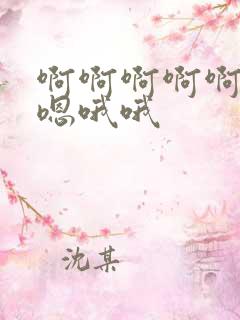 啊啊啊啊啊
嗯哦哦
沈某